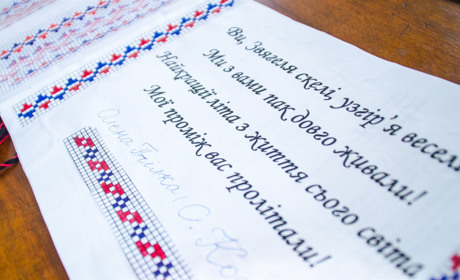 Ви, Звягеля скелі, узгір'я весел
Ми з вами так довго живали!
Найкращії літа з життя сього світа
Мої проміж вас пролітали!
Олена Пчілка (С. Ко